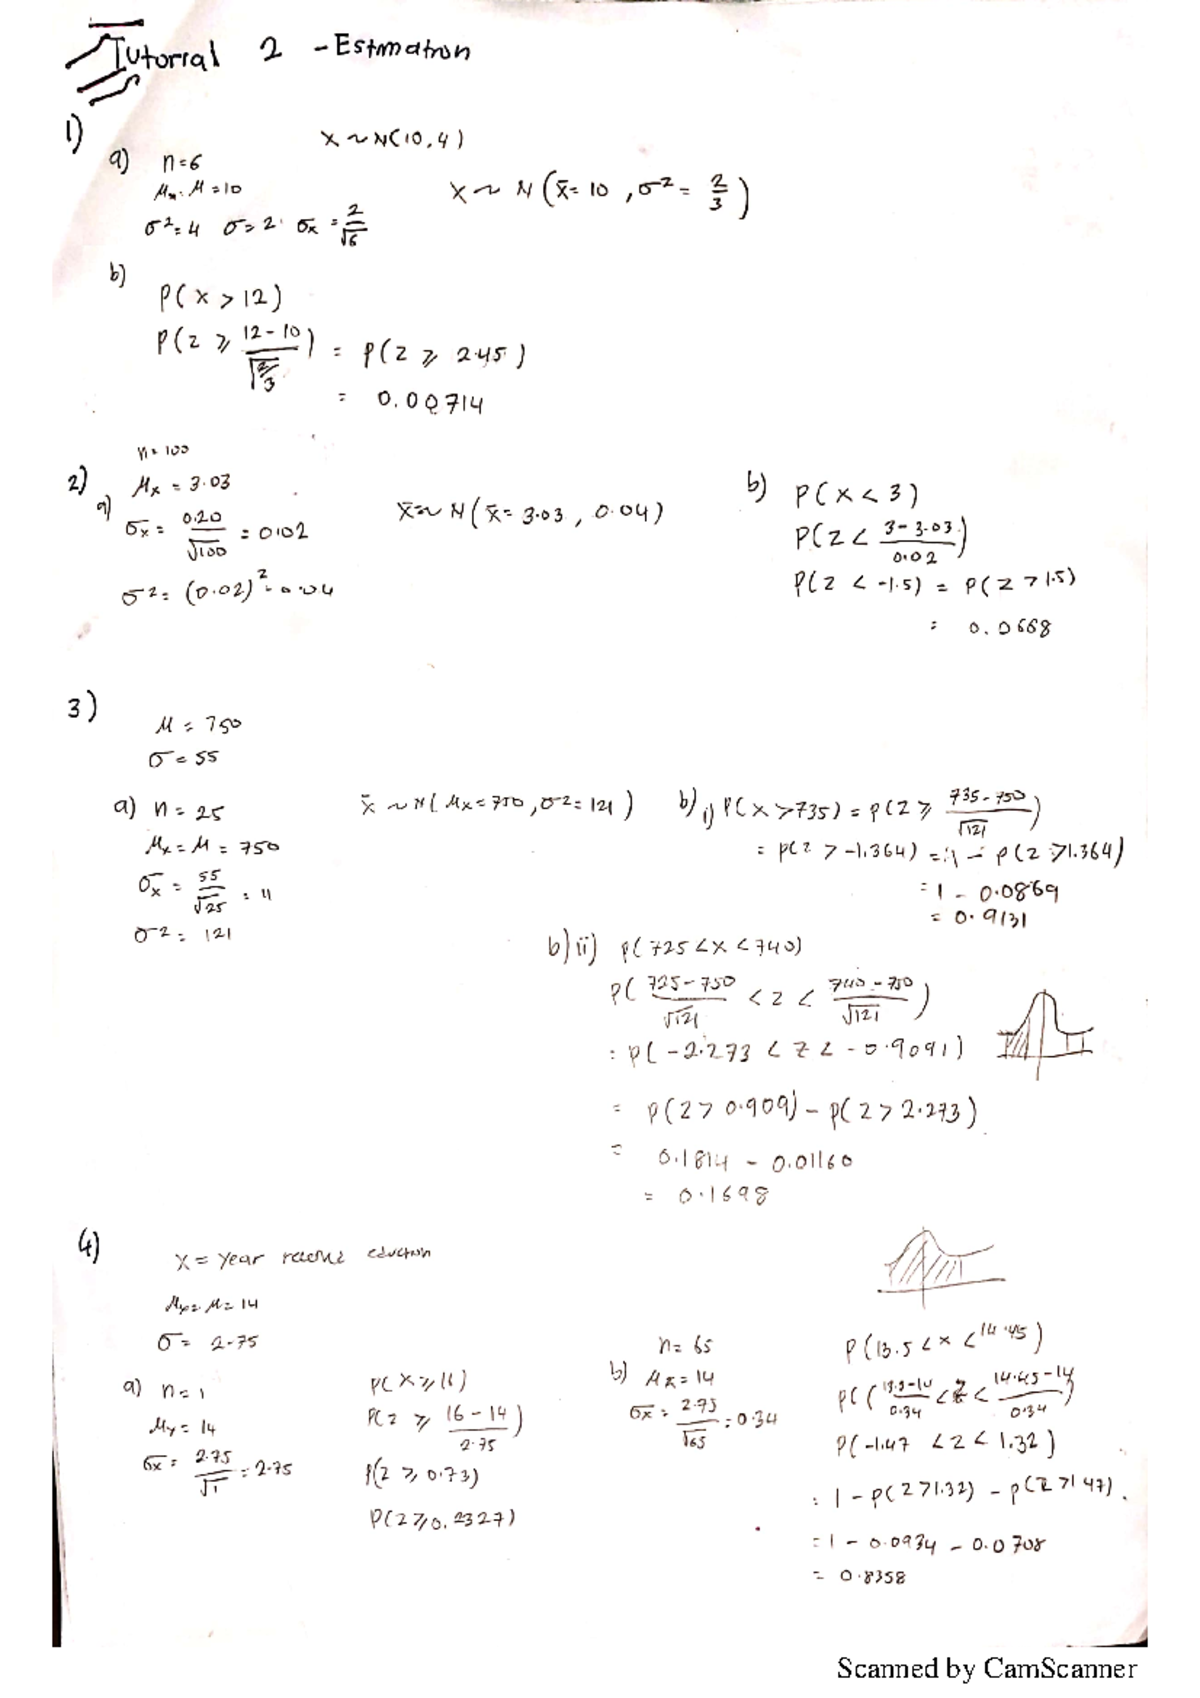 Tutorial 2 - Estimation
1)
X ~ N(10, 4)
a) n=6
μx = μ = 10
X ~ N (x̄= 10 , σ² = 2/3)
σ²= 4 σ= 2 σx = 2/√6
b)
P(X > 12)
P(Z ⩾ (12-10)/√(2/3)) = P(Z ⩾ 2.45)
= 0.00714
2)
n= 100
μx = 3.03
a) σx = 0.20/√100 = 0.02
X̄ ~ N(x̄= 3.03, 0.04)
σ²= (0.02)² = 0.04
b) P(X < 3)
P(Z < (3-3.03)/0.02)
P(Z < -1.5) = P(Z > 1.5)
= 0.0668
3)
μ = 750
σ = 55
a) n = 25
μx = μ = 750
σx = 55/√25 = 11
σ² = 121
X̄ ~ N(μx = 750, σ²= 121)
b) i) P(X > 735) = P(Z ⩾ (735-750)/√121)
= P(Z > -1.364) = 1 - P(Z > 1.364)
= 1 - 0.0869
= 0.9131
b) ii) P(725 < X < 740)
P((725-750)/√121 < Z < (740-750)/√121)
= P(-2.273 < Z < -0.9091)
= P(Z > 0.909) - P(Z > 2.273)
= 0.1814 - 0.01160
= 0.1698
4)
X = Year receive eduction
μx = μ = 14
σ = 2.75
a) n = 1
μx = 14
σx = 2.75/√1 = 2.75
P(X ⩾ 16)
P(Z ⩾ (16-14)/2.75)
P(Z ⩾ 0.73)
P(Z ⩾ 0.2327)
n= 65
b) μx̄ = 14
σx = 2.75/√65 = 0.34
P(13.5 < X < 14.45)
P((13.5-14)/0.34 < Z < (14.45-14)/0.34)
P(-1.47 < Z < 1.32)
= 1 - P(Z > 1.32) - P(Z > 1.47)
= 1 - 0.0934 - 0.0708
= 0.8358
Scanned by CamScanner